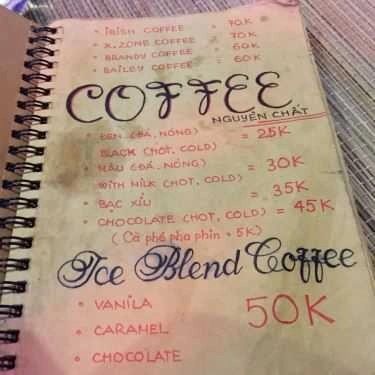 • IRISH COFFEE = 70K
• X.ZONE COFFEE = 70K
• BRANDY COFFEE = 60K
• BAILEY COFFEE = 60K
COFFEE
NGUYÊN CHẤT
• ĐEN (ĐÁ, NÓNG) = 25K
BLACK (HOT, COLD)
• NÂU (ĐÁ, NÓNG) = 30K
WITH MILK (HOT, COLD)
• BẠC XỈU = 35K
• CHOCOLATE (HOT, COLD) = 45K
( Cà phê pha phin + 5K)
Ice Blend Coffee
• VANILA
• CARAMEL 50K
• CHOCOLATE